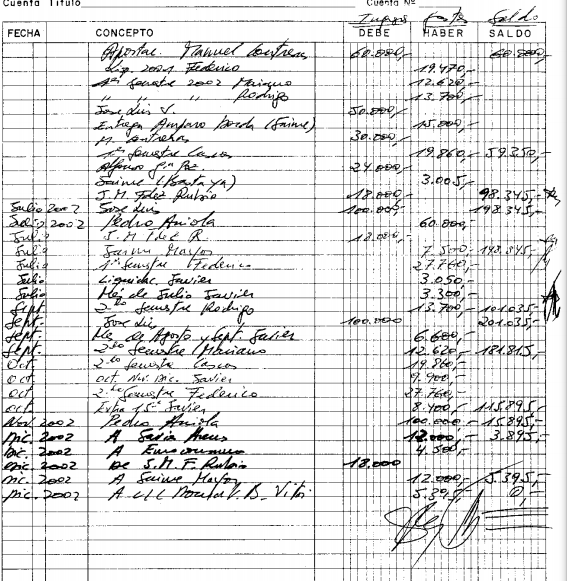 Cuenta Título Cuenta Nº
Ingresos Gastos Saldo
FECHA CONCEPTO DEBE HABER SALDO
Apostac. Manuel Contreras 60.000,- 60.000,-
Liq. 2001 Federico 19.470,-
1er Semestre 2002 Mariano 12.620,-
" " " Rodrigo 13.700,-
Jose Luis S. 50.000,-
Entrega Amparo (Jaime) 15.000,-
M. Contreras 30.000,-
1er Semestre Cascos 19.860,- 59.350,-
Alfonso Gª 24.000,-
Jaime (Basta ya) 3.005,-
J.M. Fdez Rubio 18.000,- 98.345,-
Julio 2002 Jose Luis 100.000,- 198.345,-
Julio 2002 Pedro Arriola 60.000,-
Julio J.M Fdez R. 18.000,-
Julio Jaime 7.500,- 148.845,-
Julio 1er Semestre Federico 27.760,-
Julio Liquidac Javier 3.050,-
Julio Mes de Julio Javier 3.300,-
Sept. 2do Semestre Rodrigo 13.700,- 101.035,-
Sept. Jose Luis 100.000 201.035,-
Sept. Mes de Agosto y Sept. Javier 6.600,-
Sept. 2do Semestre (Mariano 12.620,- 181.815,-
Oct. 2do Semestre Cascos 19.860,-
Oct. Oct. Nov. Dic. Javier 9.900,-
Oct 2do Semestre Federico 27.760,-
Oct. Extra 1 S Javier 8.400,- 115.895,-
Nov. 2002 Pedro Arriola 100.000,- 15.895,-
Dic. 2002 A 12.000,- 3.895,-
Dic. 2002 A 4.500,-
Dic. 2002 De J.M.F. Rubio 18.000
Dic. 2002 A Jaime 12.000,- 5.395,-
Dic. 2002 A B. Vitº 5.395,- 0,-